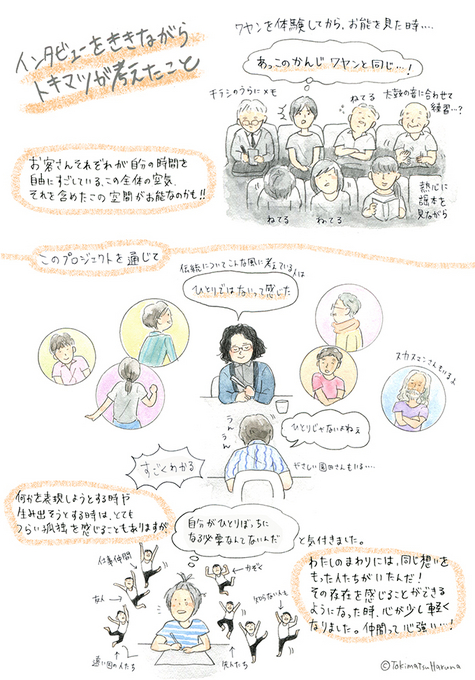 インタビューをききながら
トキマツが考えたこと
ワヤンを体験してから、お能を見た時‥‥
あっこのかんじ ワヤンと同じ…!
チラシのうらにメモ
ねてる
太鼓の音に合わせて
練習…?
お客さんそれぞれが自分の時間を
自由にすごしている、この全体の空気、
それを含めたこの空間がお能なのかも!!
ねてる
ねてる
熱心に
謡本を
見ながら
このプロジェクトを通じて
伝統についてこんな風に考えている人は
ひとりではないって感じた
スカスマンさんもいるよ
うんうん
ひとりじゃないよねぇ
すごくわかる
やさしい
さんもいる‥‥
何かを表現しようとする時や
生み出そうとする時は、とても
つらい孤独を感じることもありますが
自分がひとりぼっちに
なる必要なんてないんだ
と気付きました。
仕事仲間
かぞく
友人
知らない人も
遠い国の人たち
先人たち
わたしのまわりには、同じ想いを
もった人たちがいたんだ!
その存在を感じることができる
ようになった時、心が少し軽く
なりました。仲間って心強い…!
©TokimatsuHaruna